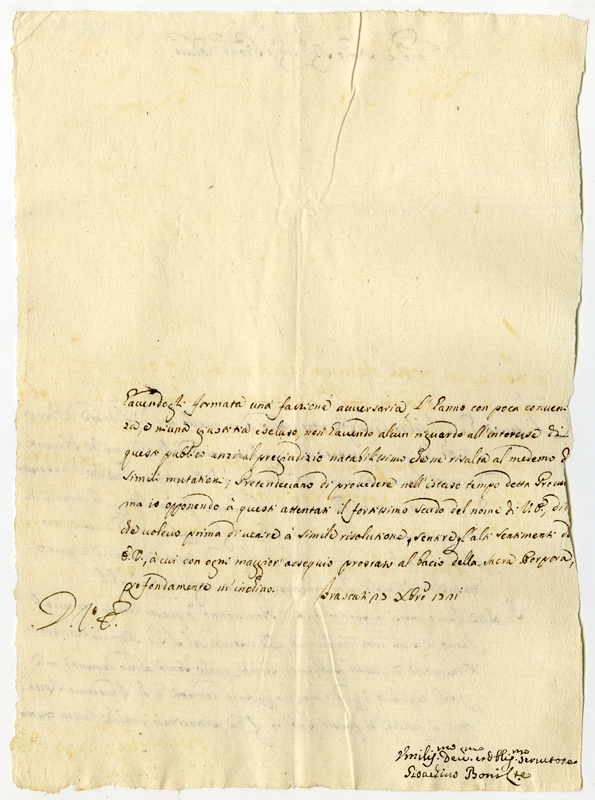 havendogli formata una fazzione avversaria l'hanno con poca conveni-
za, e niuna giustitia escluso, non havendo alcun riguardo all'interesse di
questo publico anzi al pregiudizio notabilissimo che ne risulta al medemo di
simili mutationi; Pretendevano di provedere nell'istesso tempo detta Procu
ma io opponendo à questi attentati il fortissimo scudo del nome di V.E., di
che volevo prima di venire à simile risolutione, sentire l'alti sentimenti di
E.V., à cui con ogni maggior ossequio prostrato al bacio della Sacra Porpora,
profondamente m'inchino. Frascati 13 Xbre 1721
D. V. E.
Umiliss.mo Dev.mo ed Obblig.mo Servitore
Gioachino